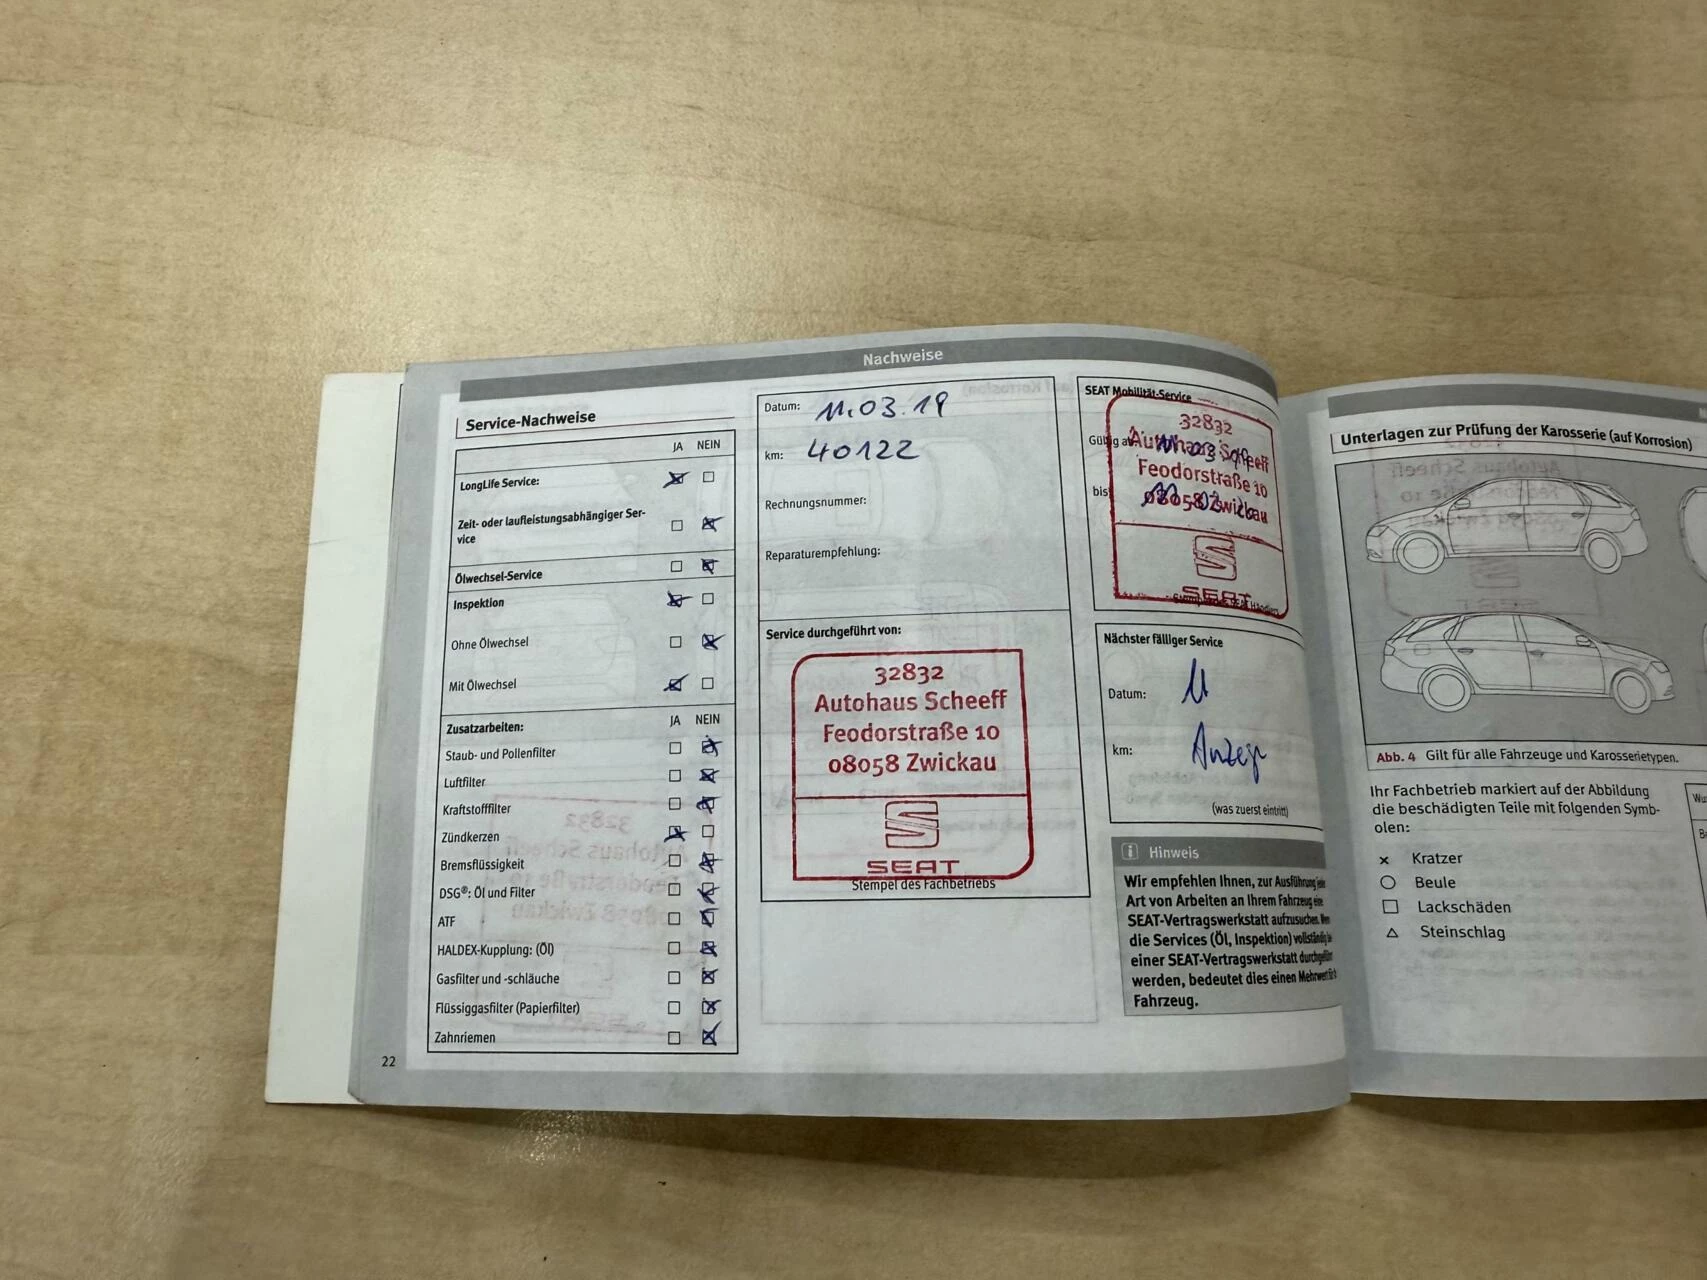 Nachweise
Service-Nachweise
JA NEIN
LongLife Service:
Zeit- oder laufleistungsabhängiger Ser-
vice
Ölwechsel-Service
Inspektion
Ohne Ölwechsel
Mit Ölwechsel
Zusatzarbeiten: JA NEIN
Staub- und Pollenfilter
Luftfilter
Kraftstofffilter
Zündkerzen
Bremsflüssigkeit
DSG®: Öl und Filter
ATF
HALDEX-Kupplung: (Öl)
Gasfilter und -schläuche
Flüssiggasfilter (Papierfilter)
Zahnriemen
22
Datum: 11.03.19
km: 40122
Rechnungsnummer:
Reparaturempfehlung:
Service durchgeführt von:
32832
Autohaus Scheeff
Feodorstraße 10
08058 Zwickau
SEAT
Stempel des Fachbetriebs
SEAT Mobilität-Service
32832
Autohaus Scheeff
Feodorstraße 10
bis
08058 Zwickau
SEAT
Nächster fälliger Service
Datum:
km:
(was zuerst eintritt)
i Hinweis
Wir empfehlen Ihnen, zur Ausführung jeder
Art von Arbeiten an Ihrem Fahrzeug eine
SEAT-Vertragswerkstatt aufzusuchen.
die Services (Öl, Inspektion) vollständig
einer SEAT-Vertragswerkstatt durchgeführt
werden, bedeutet dies einen Mehrwert
Fahrzeug.
Unterlagen zur Prüfung der Karosserie (auf Korrosion)
Abb. 4 Gilt für alle Fahrzeuge und Karosserietypen.
Ihr Fachbetrieb markiert auf der Abbildung
die beschädigten Teile mit folgenden Symb-
olen:
Kratzer
Beule
Lackschäden
Steinschlag